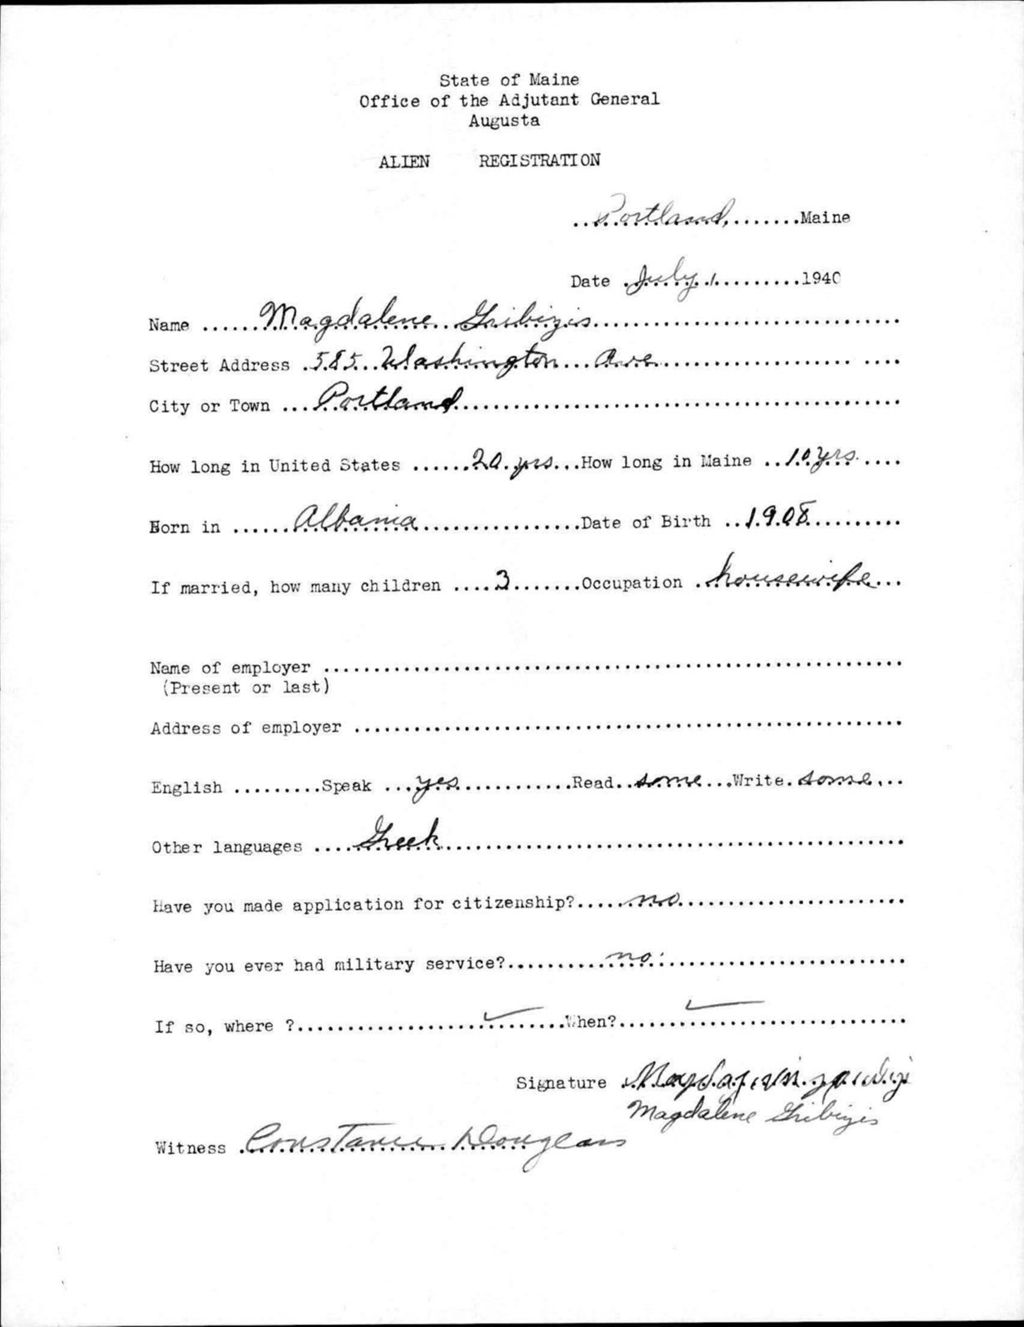 State of Maine
Office of the Adjutant General
Augusta
ALIEN REGISTRATION
Portland, Maine
Date July 1 1940
Name Magdalene Gribizis
Street Address 585 Washington Ave
City or Town Portland
How long in United States 20 yrs How long in Maine 10 yrs.
Born in Albania Date of Birth 1908
If married, how many children 3 Occupation housewife
Name of employer
(Present or last)
Address of employer
English Speak yes Read some Write some
Other languages Greek
Have you made application for citizenship? no
Have you ever had military service? no
If so, where ? When?
Signature
Magdalene Gribizis
Witness Constance